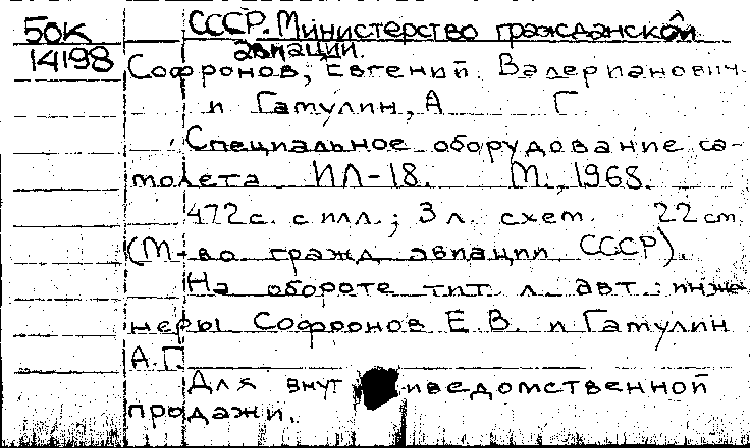 50К
14198
СССР. Министерство гражданской
авиации.
Софронов, Евгений Валерианович
и Гатулин, А Г
Специальное оборудование са-
молета ИЛ-18. М., 1968.
472с. с илл.; 3 л. схем. 22 см
(М-во гражд авиации СССР)
На обороте тит. л. авт.: инже
неры Софронов Е. В. и Гатулин
А.Г.
Для внут иведомственной
продажи.